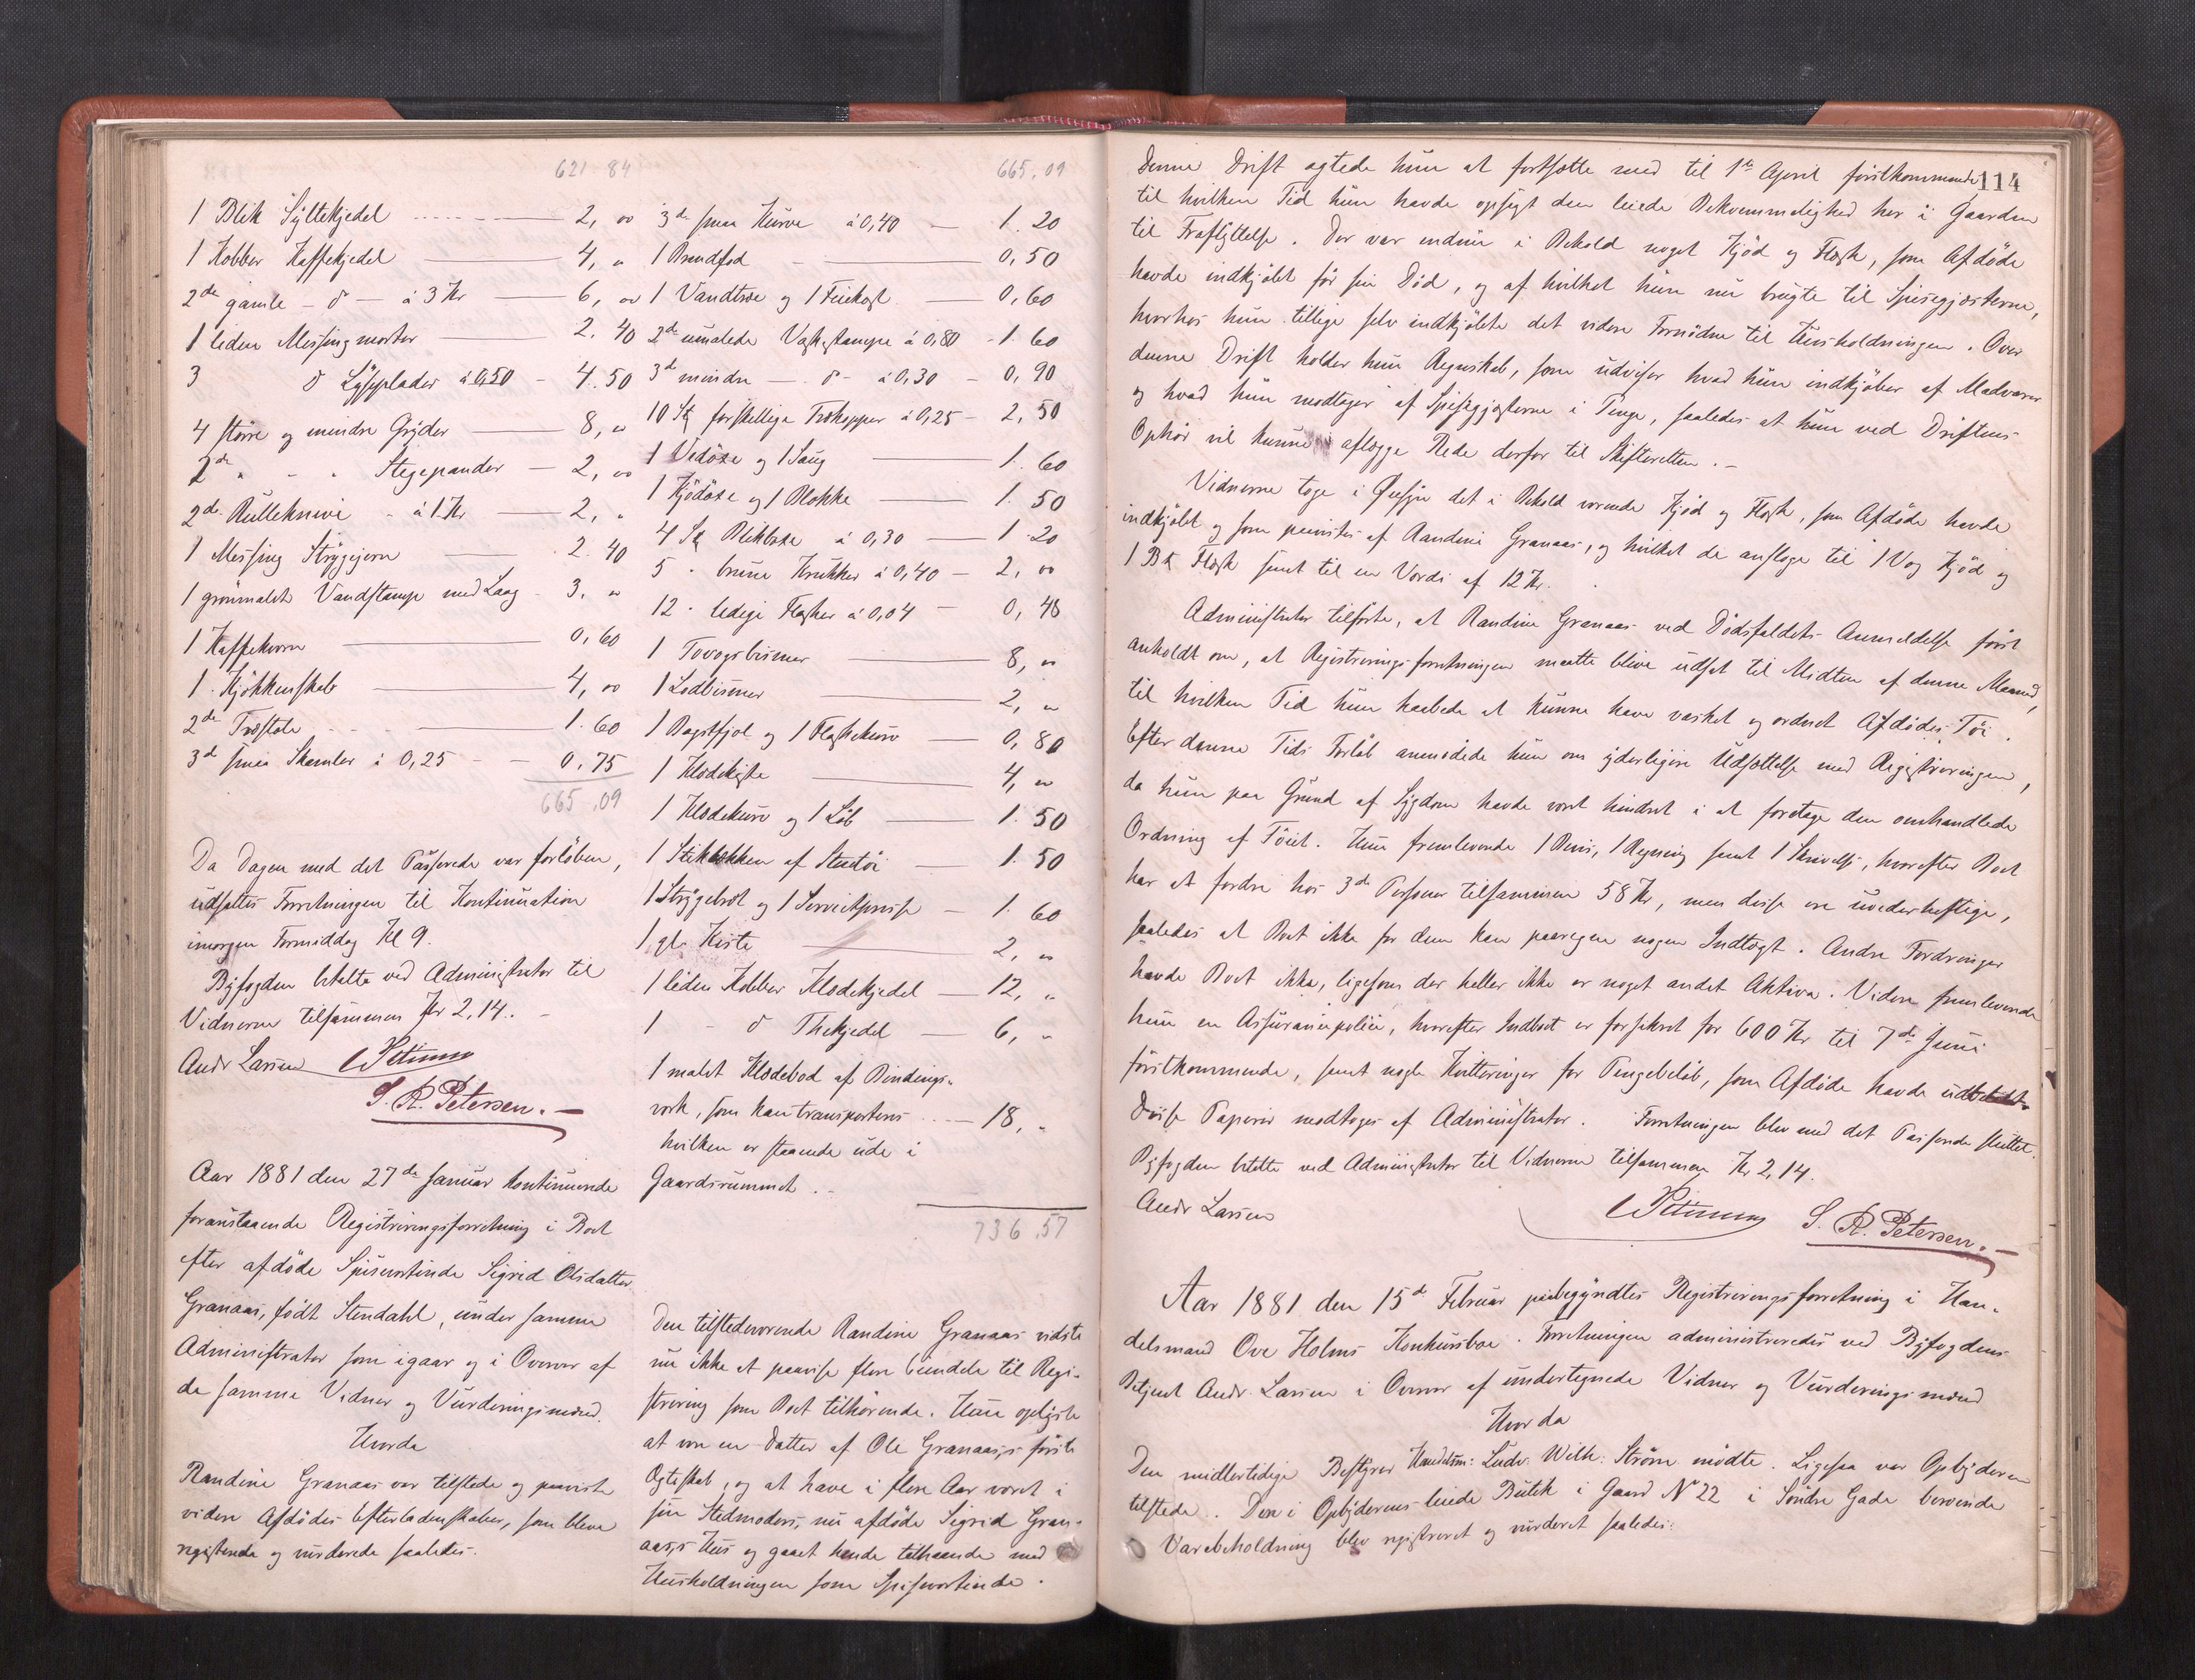 621.84
1 Blik Syltekjedel 2, oo
1 Kobber Kaffekjedel 4, "
2de gamle - d° - à 3 Kr 6, oo
1 liden Messingmorter 2. 40
3 d° Lyseplader à 0,50 - 4.50
4 större og mindre Gryder 8, "
2de " - " Stegepander - 2, oo
2de Rulleknive - à 1 Kr 2, "
1 Messing Strygejern 2. 40
1 grönmalet Vandstampe med Laag - 3. "
1 Kaffekvern 0,60
1 Kjökkenskab 4, oo
2de Træstole 1.60
3de smaa Skamler à 0,25 - - 0.75
665.09
Da Dagen med det Passerede var forlöben,
udsattes Forretningen til Kontinuation
imorgen Formiddag Kl 9.
Byfogden betalte ved Administrator til
Vidnerne tilsammen Kr 2,14. -
Andr Larsen
S. R. Petersen. -
Aar 1881 den 27de Januar kontinuerede
foranstaaende Registreringsforretning i Boet
efter afdöde Spiseværtinde Sigrid Olsdatter
Granaas, födt Stendahl, under samme
Administrator som igaar og i Overvær af
de samme Vidner og Vurderingsmænd.
Hvorda
Randine Granaas var tilstede og paaviste
videre Afdödes Efterladenskaber, som bleve
registrerede og vurderede saaledes:
665.09
3de smaa Kurve à 0,40 - 1.20
1 Brændfad - 0,50
1 Vandtræ og 1 Feiekost 0,60
2de umalede Vaskestampe à 0,80 - 1.60
3de mindre - d° - à 0,30 - 0,90
10 Stk forskellige Trækopper à 0,25 - 2,50
1 Vedöxe og 1 Saug 1.60
1 Kjödöxe og 1 Blokke 1.50
4 Stk Blikboxe à 0,30 1.20
5 - brune Krukker à 0,40 - 2, oo
12 - ledige Flasker à 0,04 - 0,48
1 Tovogsbismer 8, oo
1 Lodbismer 2, "
1 Bagstfjel og 1 Flaskekurv 0,80
1 Klædekiste 4, "
1 Klædekurv og 1 Löb 1.50
1 Stikbækken af Stentöi 1.50
1 Strygebræt og 1 Servietpresse - 1.60
1 gl. Kiste 2, "
1 liden Kobber Klædekjedel - 12, "
1 - d° Thekjedel 6, "
1 malet Klædebod af Bindings-
værk, som kan transporteres - 18, "
hvilken er staaende ude i
Gaardsrummet.
736.57
Den tilstedeværende Randine Granaas vidste
nu ikke at paavise flere Gjendele til Regi-
strering som Boet tilhörende. Hun oplyste
at være en Datter af Ole Granaas's förste
Ægteskab, og at have i flere Aar været i
sin Stedmoders, nu afdöde Sigrid Gran-
aas's Hus og gaaet hende tilhaande med
Husholdningen som Spiseværtinde.
114
Denne Drift agtede hun at fortsætte med til 1ste April förstkommende
til hvilken Tid hun havde opsagt den leiede Bekvemmelighed her i Gaarden
til Fraflyttelse. Der var endnu i Behold noget Kjöd og Flesk, som Afdöde
havde indkjöbt för sin Död, og af hvilket hun nu brugte til Spisegjæsterne,
hvorhos hun tillige selv indkjöbte det videre Fornödne til Husholdningen. Over
denne Drift holder hun Regnskab, som udviser hvad hun indkjöber af Madvarer
og hvad hun modtager af Spisegjæsterne i Penge, saaledes at hun ved Driftens
Ophör vil kunne aflægge Rede derfor til Skifteretten. -
Vidnerne toge i Öiesyn det i Behold værende Kjöd og Flesk, som Afdöde havde
indkjöbt og som paavistes af Randine Granaas, og hvilket de ansloge til 1 Vog Kjöd og
1 B℔ Flesk samt til en Værdi af 12 Kr.
Administrator tilförte, at Randine Granaas ved Dödsfaldets Anmeldelse först
anholdt om, at Registreringsforretningen maatte blive udsat til Midten af denne Maaned,
til hvilken Tid hun haabede at kunne have vasket og ordnet Afdödes Töi.
Efter denne Tids Forlöb anmodede hun om yderligere Udsættelse med Registreringen,
da hun paa Grund af Sygdom havde været hindret i at foretage den omhandlede
Ordning af Töiet. Hun fremleverede 1 Bevis, 1 Regning samt 1 Skrivelse, hvorefter Boet
har at fordre hos 3de Personer tilsammen 58 Kr, men disse ere uvederheftige,
saaledes at Boet ikke for dem kan paaregne nogen Indtægt. Andre Fordringer
havde Boet ikke, ligesom der heller ikke er noget andet Aktiva. Videre fremleverede
hun en Assurancepolice, hvorefter Indboet er forsikret for 600 Kr til 7de Juni
förstkommende, samt nogle Kvitteringer for Pengebelöb, som Afdöde havde udbetalt.
Disse Papirer modtoges af Administrator. Forretningen blev med det Passerede sluttet.
Byfogden betalte ved Administrator til Vidnerne tilsammen Kr 2,14.
Andr Larsen
S. R. Petersen. -
Aar 1881 den 15de Februar paabegyndtes Registreringsforretning i Han-
delsmand Ove Holms Konkursboe. Forretningen administreredes ved Byfogdens
Betjent Andr. Larsen i Overvær af undertegnede Vidner og Vurderingsmænd
Hvorda
Den midlertidige Bestyrer Handelsm: Ludv. Wilh. Ström mödte. Ligesaa var Opbyderen
tilstede. Den i Opbyderens leiede Butik i Gaard No 22 i Söndre Gade beroende
Varebeholdning blev registreret og vurderet saaledes: